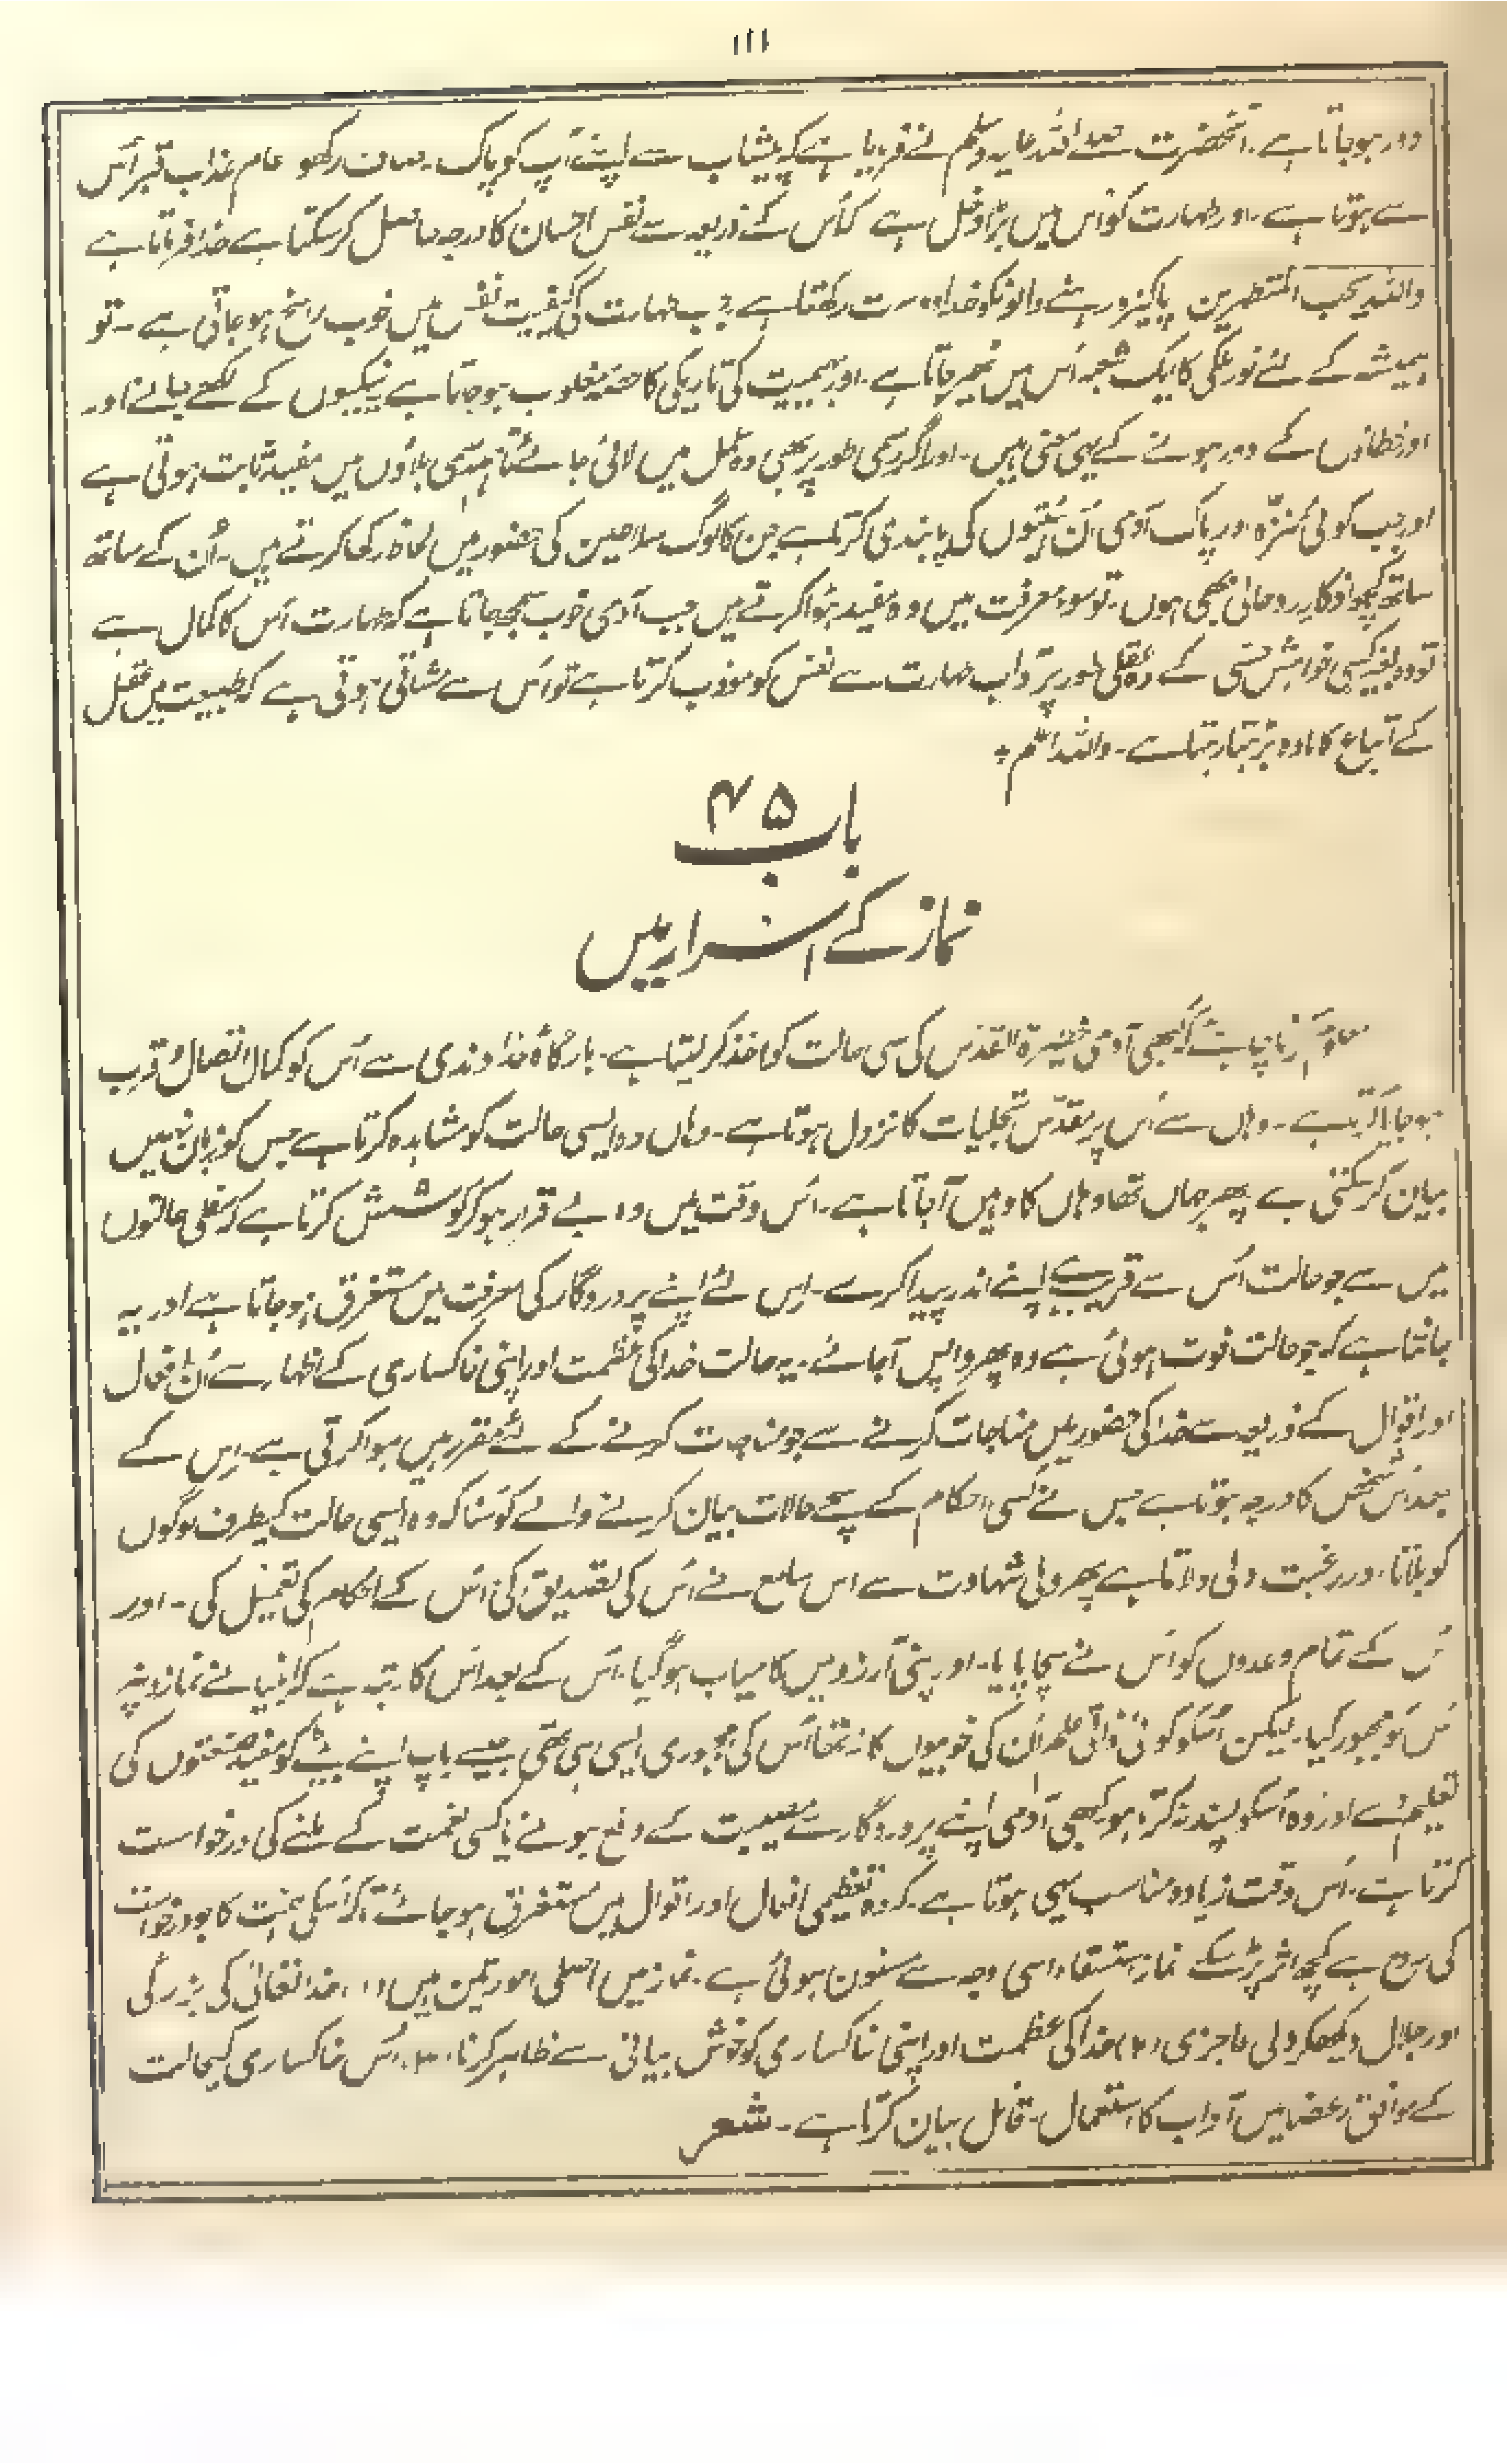 ۱۱۱
دور ہوجاتا ہے۔ آنحضرت صلے اللہ علیہ وسلم نے فرمایا ہے کہ پیشاب سے اپنے آپ کو پاک۔ صاف رکھو عام عذاب قبر اُس
سے ہوتا ہے۔ اور طہارت کو اس میں بڑا دخل ہے کہ اُس کے ذریعہ سے نفس احسان کا درجہ حاصل کر سکتا ہے خدا فرماتا ہے
واللہ یحب المتطہرین پاکیزہ رہنے والونکو خدا دوست رکھتا ہے جب طہارت کی کیفیت نفس میں خوب راسخ ہوجاتی ہے۔ تو
ہمیشہ کے لئے نور ملکی کا ایک شعبہ اُس میں ٹھیر جاتا ہے۔ اور بہیمیت کی تاریکی کا حصہ مغلوب ہوجاتا ہے نیکیوں کے لکھے جانے اور
اور خطاؤں کے دور ہونے کے یہی معنی ہیں۔ اور اگر رسمی طور پر بھی وہ عمل میں لائی جائے تاہم رسمی بلاؤں میں مفید ثابت ہوتی ہے
اور جب کوئی منزّہ اور پاک آدمی اُن ہیئتوں کی پابندی کرتا ہے جن کا لوگ سلاطین کی حضور میں لحاظ رکھا کرتے ہیں۔ اُن کے ساتھ
ساتھ کچھ اذکار روحانی بھی ہوں۔ تو سوء معرفت میں وہ مفید ہوا کرتے ہیں جب آدمی خوب سمجھ جاتا ہے کہ طہارت اُس کا کمال ہے
تو وہ بغیر کسی خواہش حسی کے وہ عقلی طور پر آداب طہارت سے نفس کو مؤدب کرتا ہے تو اُس سے مشاقی ہوتی ہے کہ طبیعت میں عقل
کے اتباع کا مادہ بڑہتا رہتا ہے۔ واللہ اعلم ؞
باب ۴۵
نماز کے اسرار میں
معلوم کرنا چاہئے کہ کبھی آدمی حظیرۃ القدس کی سی حالت کو اخذ کر لیتا ہے۔ بارگاہ خداوندی سے اُس کو کمال اتصال و قرب
ہو جایا کرتا ہے۔ وہاں سے اُس پر مقدّس تجلیات کا نزول ہوتا ہے۔ وہاں وہ ایسی حالت کو مشاہدہ کرتا ہے جس کو زبان نہیں
بیان کر سکتی ہے پھر جہاں تھا وہاں کا وہیں آجاتا ہے۔ اُس وقت میں وہ بے قرار ہو کر کوشش کرتا ہے کہ سفلی حالتوں
میں سے جو حالت اُس سے قریب ہے اپنے اندر پیدا کرے۔ اِس لئے اپنے پروردگار کی معرفت میں مستغرق ہوجاتا ہے اور یہ
جانتا ہے کہ جو حالت فوت ہوئی ہے وہ پھر واپس آجائے۔ یہ حالت خدا کی عظمت اور اپنی خاکساری کے اظہار سے اُن افعال
اور اقوال کے ذریعہ سے خدا کی حضور میں مناجات کرنے سے جو مناجات کرنے کے لئے مقرر ہیں ہوا کرتی ہے۔ اِس کے
بعد اُس شخص کا درجہ ہوتا ہے جس نے کسی احکام کے سچے حالات بیان کرنے والے کو سُنا کہ وہ ایسی حالت کیطرف لوگوں
کو بلاتا۔ اور رغبت دلی دلاتا ہے پھر دلی شہادت سے اس سامع نے اُس کی تصدیق کی اُس کے احکام کی تعمیل کی۔ اور
اُس کے تمام وعدوں کو اُس نے سچا پایا۔ اور اپنی آرزو میں کامیاب ہوگیا۔ اُس کے بعد اُس کا رتبہ ہے کہ انبیا نے نماز پر
اُس کو مجبور کیا۔ لیکن اُسکو کوئی ذاتی علم اُن کی خوبیوں کا نہ تھا اُس کی مجبوری ایسی ہی تھی جیسے باپ اپنے بیٹے کو مفید صنعتوں کی
تعلیم دے اور وہ اُسکو پسند نہ کرتا ہو کبھی آدمی اپنے پروردگار سے مصیبت کے دفع ہونے یا کسی نعمت کے ملنے کی درخواست
کرتا ہے۔ اُس وقت زیادہ مناسب یہی ہوتا ہے۔ کہ وہ تعظیمی افعال اور اقوال میں مستغرق ہوجائے تاکہ اُسکی ہمت کا جو درخواست
کی روح ہے کچھ اثر پڑ سکے نماز استسقاء اسی وجہ سے مسنون ہوئی ہے۔ نماز میں اصلی امور تین ہیں (۱) خدا تعالیٰ کی بزرگی
اور جلال دیکھکر دلی عاجزی (۲) خدا کی عظمت اور اپنی خاکساری کو خوش بیانی سے ظاہر کرنا (۳) اُس خاکساری کیحالت
کے موافق اعضا میں آداب کا استعمال۔ قائل بیان کرتا ہے۔ شعر